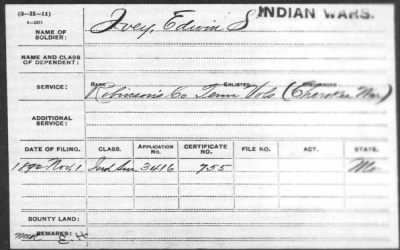 (3-31-11)
INDIAN WARS.
NAME OF SOLDIER:
Ivey, Edwin S
NAME AND CLASS OF DEPENDENT:
RANK ENLISTED
SERVICE:
Robinson's Co Tenn Vols (Cherokee War)
ADDITIONAL SERVICE:
DATE OF FILING. CLASS. APPLICATION NO. CERTIFICATE NO. FILE NO. ACT. STATE.
1892 Nov, 1 Ind Sur 3416 755 Mo
BOUNTY LAND:
REMARKS: